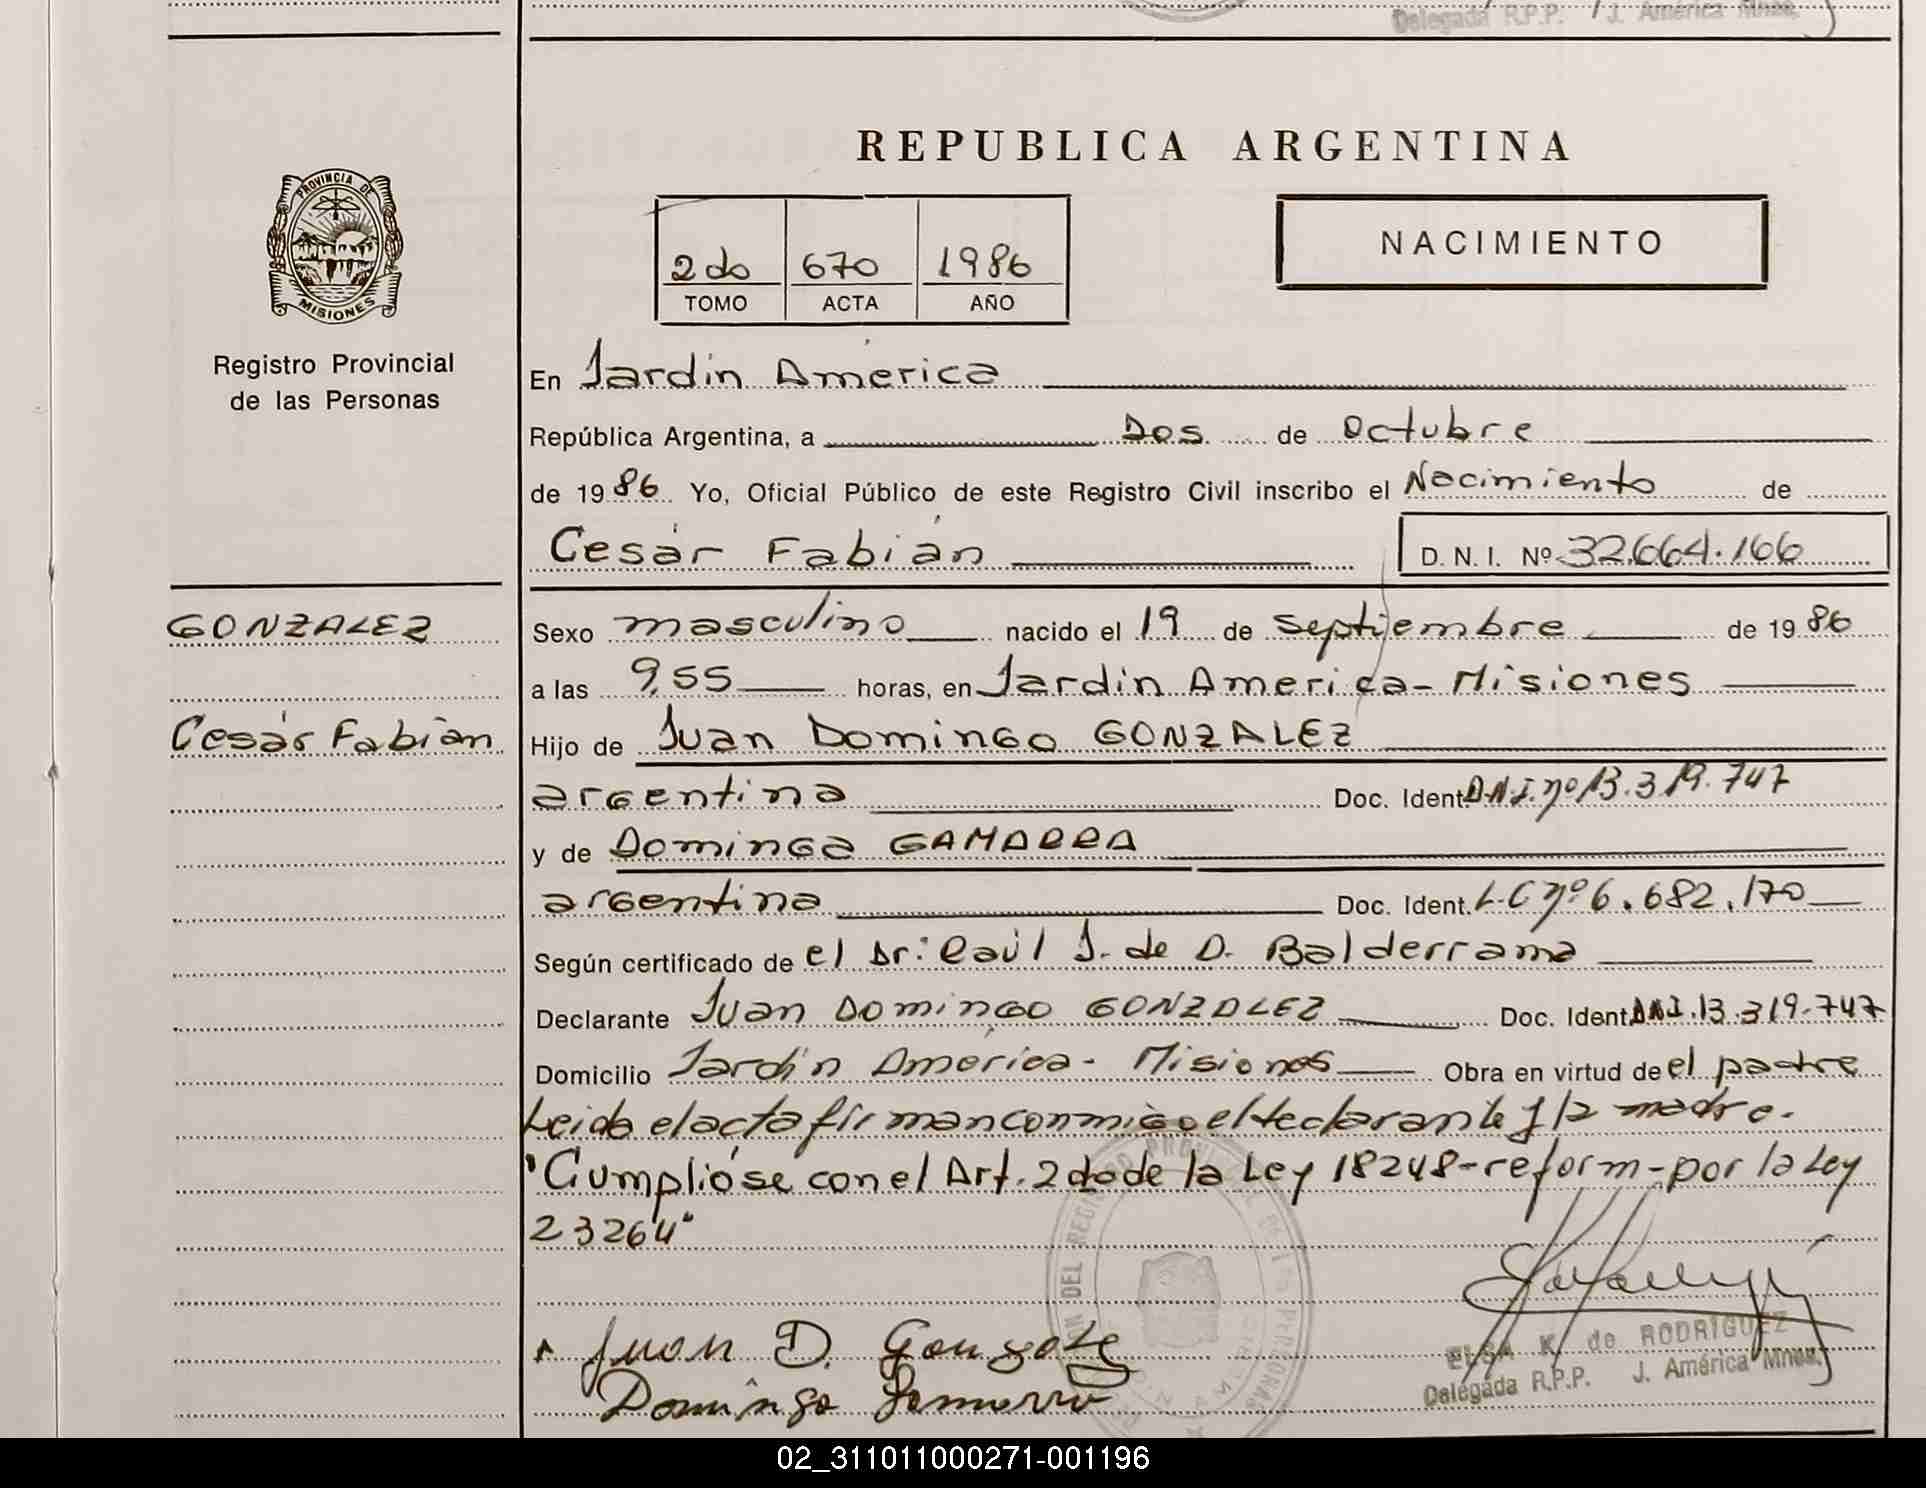 Delegada R.P.P. J. América Mnes.
REPUBLICA ARGENTINA
PROVINCIA DE
MISIONES
2do 670 1986
TOMO ACTA AÑO
NACIMIENTO
Registro Provincial
de las Personas
En Jardín América
República Argentina, a Dos de Octubre
de 1986 Yo, Oficial Público de este Registro Civil inscribo el Nacimiento de
Cesár Fabián D. N. I. Nº 32.664.166
GONZALEZ
Cesár Fabián
Sexo masculino nacido el 19 de septiembre de 1986
a las 9,55 horas, en Jardín America - Misiones
Hijo de Juan Domingo GONZALEZ
argentina Doc. Ident. D.N.I. nº 13.319.747
y de Dominga GAMARRA
argentina Doc. Ident. L.C nº 6.682.170
Según certificado de el Dr: Raúl J. de D. Balderrama
Declarante Juan Domingo GONZALEZ Doc. Ident. DNI.13.319.747
Domicilio Jardín América - Misiones Obra en virtud de el padre
Leida el acta firman conmigo el declarante y la madre.
"Cumplióse con el Art. 2do de la Ley 18248-reform-por la Ley
23264"
Juan D. Gonzalez
Dominga Gamarra
ELSA K. de RODRIGUEZ
Delegada R.P.P. J. América Mnes.
02_311011000271-001196